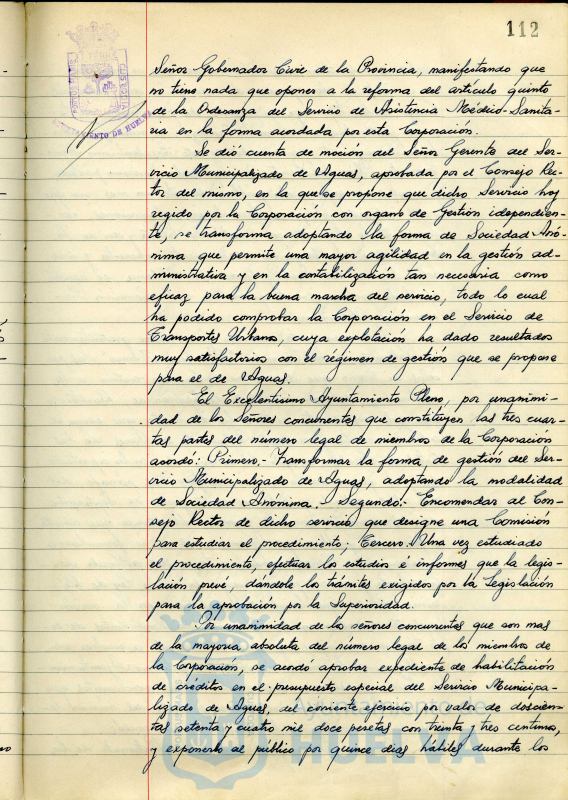 112
AYUNTAMIENTO DE HUELVA
Señor Gobernador Civil de la Provincia, manifestando que
no tiene nada que oponer a la reforma del artículo quinto
de la Ordenanza del Servicio de Asistencia Médico-Sanita-
ria en la forma acordada por esta Corporación.
Se dió cuenta de moción del Señor Gerente del Ser-
vicio Municipalizado de Aguas, aprobada por el Consejo Rec-
tor del mismo, en la que se propone que dicho Servicio hoy
regido por la Corporación con organo de Gestión idependien-
te, se transforma adoptando la forma de Sociedad Anó-
nima que permite una mayor agilidad en la gestión ad-
ministrativa y en la contabilización tan necesaria como
eficaz para la buena marcha del servicio, todo lo cual
ha podido comprobar la Corporación en el Servicio de
Transportes Urbanos, cuya explotación ha dado resultados
muy satisfactorios con el régimen de gestión que se propone
para el de Aguas.
El Excelentísimo Ayuntamiento Pleno, por unanimi-
dad de los Señores concurrentes que constituyen las tres cuar-
tas partes del número legal de miembros de la Corporación
acordó: Primero- Transformar la forma de gestión del Ser-
vicio Municipalizado de Aguas, adoptando la modalidad
de Sociedad Anónima. Segundo:- Encomendar al Con-
sejo Rector de dicho servicio que designe una Comisión
para estudiar el procedimiento; Tercero. Una vez estudiado
el procedimiento, efectuar los estudios é informes que la legis-
lación prevé, dándole los trámites exigidos por la Legislación
para la aprobación por la Superioridad.
Por unanimidad de los señores concurrentes que son mas
de la mayoria absoluta del número legal de los miembros de
la Corporación, se acordó aprobar expediente de habilitación
de créditos en el presupuesto especial del Servicio Municipa-
lizado de Aguas, del corriente ejercicio por valor de doscien-
tas setenta y cuatro mil doce pesetas con treinta y tres centimos,
y exponerlo al público por quince dias hábiles durante los
HUELVA